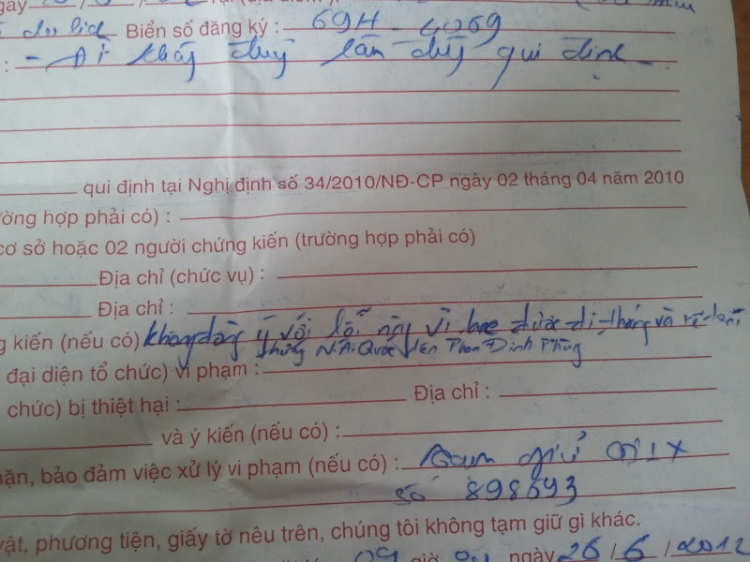 Biển số đăng ký : 69H - 4069
: - Đi không đúng làn đường qui định -
qui định tại Nghị định số 34/2010/NĐ-CP ngày 02 tháng 04 năm 2010
ờng hợp phải có) :
cơ sở hoặc 02 người chứng kiến (trường hợp phải có)
Địa chỉ (chức vụ) :
Địa chỉ :
g kiến (nếu có) không đồng ý với lỗi này vì được đi thẳng và rẽ
thẳng N.Ái Quốc lên Phan Đình Phùng
đại diện tổ chức) vi phạm :
chức) bị thiệt hại : Địa chỉ :
và ý kiến (nếu có) :
ặn, bảo đảm việc xử lý vi phạm (nếu có) : Tạm giữ
số 898693
vật, phương tiện, giấy tờ nêu trên, chúng tôi không tạm giữ gì khác.
09 giờ ngày 26 / 6 / 2012